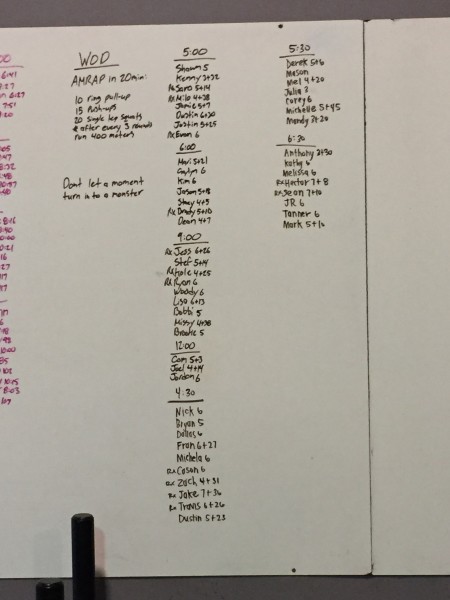 WOD
AMRAP in 20min:
10 ring pull-up
15 Push-ups
20 Single leg squats
* after every 3 rounds
run 400 meters
Dont let a moment
turn in to a monster
5:00
Shawn 5
Kenny 3+32
Rx Sara 5+14
Rx Milo 4+38
Jamie 5+7
Dustin 6+20
Justin 5+25
Rx Evan 6
6:00
Mari 5+21
Caylyn 6
Kim 6
Jason 5+18
Stacy 4+5
Rx Brady 5+10
Dean 4+7
9:00
Rx Jess 6+26
Stef 5+14
Rx Kole 4+25
Rx Ryan 6
Woody 6
Lisa 6+13
Bobbi 5
Missy 4+38
Brooke 5
12:00
Cam 5+3
Joel 4+14
Jordan 6
4:30
Nick 6
Bryan 5
Dallas 6
Fran 6+27
Michela 6
Rx Cason 6
Rx Zach 4+31
Rx Jake 7+36
Rx Travis 6+26
Dustin 5+23
5:30
Derek 5+6
Mason
Mel 4+20
Julia 3
Corey 6
Michelle 5+45
Mandy 3+20
6:30
Anthony 3+30
Kathy 6
Melissa 6
Rx Hector 7+8
Rx Sean 7+10
JR 6
Tanner 6
Mark 5+10